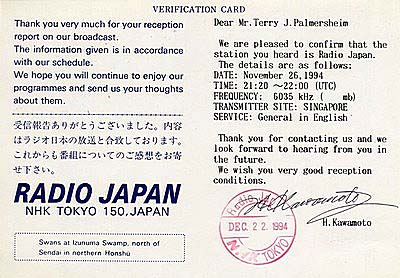 VERIFICATION CARD
Thank you very much for your reception
report on our broadcast.
The information given is in accordance
with our schedule.
We hope you will continue to enjoy our
programmes and send us your thoughts
about them.
受信報告ありがとうございました。内容
はラジオ日本の放送と合致しております。
これからも番組についてのご感想をお寄
せ下さい。
RADIO JAPAN
NHK TOKYO 150, JAPAN
Swans at Izunuma Swamp, north of
Sendai in northern Honshū
Dear Mr.Terry J.Palmersheim
We are pleased to confirm that the
station you heard is Radio Japan.
The details are as follows:
DATE: November 26,1994
TIME: 21:20 ~22:00 (UTC)
FREQUENCY: 6035 kHz ( mb)
TRANSMITTER SITE: SINGAPORE
SERVICE: General in English
Thank you for contacting us and we
look forward to hearing from you in
the future.
We wish you very good reception
conditions.
H.Kawamoto
H.Kawamoto
Radio Japan
DEC. 22. 1994
TOKYO